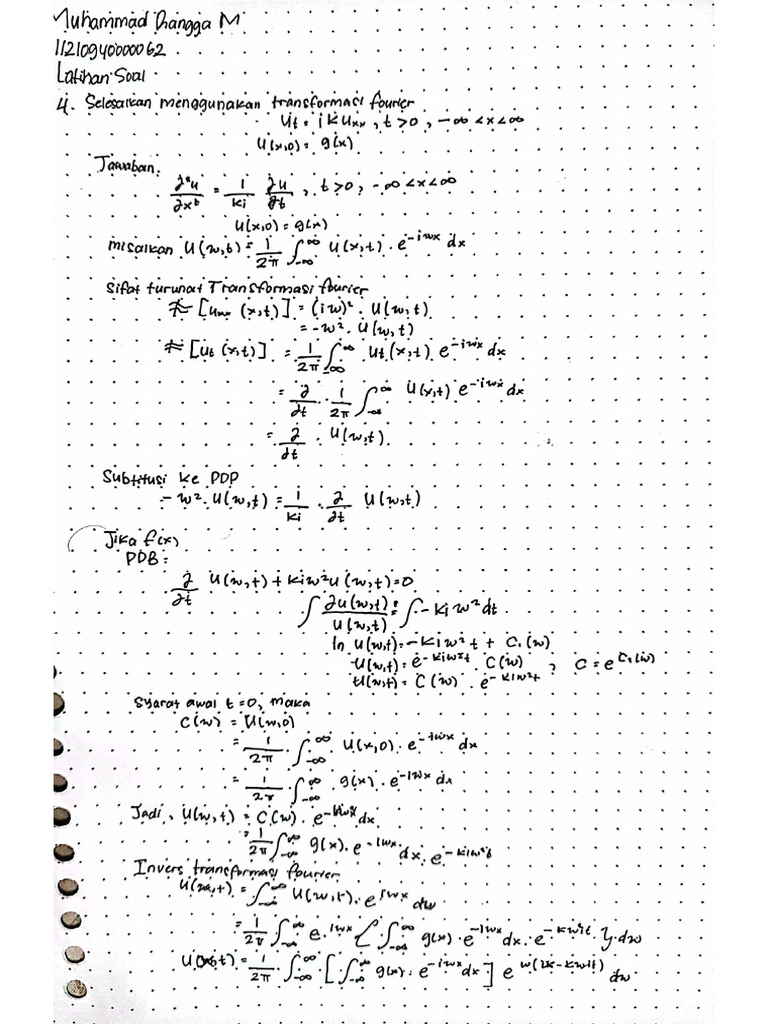 Muhammad Dhangga M
11210940000062
Latihan Soal
4. Selesaikan menggunakan transformasi fourier
Ut = i k Uxx, t>0, -∞ <x<∞
U(x,0) = g(x)
Jawaban:
∂²u/∂x² = 1/ki ∂u/∂t, t>0, -∞<x<∞
U(x,0) = g(x)
misalkan U(w,t) = 1/2π ∫_{-∞}^{∞} U(x,t) · e^{-iwx} dx
Sifat turunat Transformasi fourier
F[Uxx (x,t)] = (iw)² · U(w,t)
= -w² · U(w,t)
F[Ut (x,t)] = 1/2π ∫_{-∞}^{∞} Ut(x,t) e^{-iwx} dx
= ∂/∂t · 1/2π ∫_{-∞}^{∞} U(x,t) e^{-iwx} dx
= ∂/∂t · U(w,t)
Subtitusi ke PDP
-w² · U(w,t) = 1/ki · ∂/∂t U(w,t)
Jika f(x)
PDB:
∂/∂t U(w,t) + kiw² U(w,t) = 0
∫ ∂U(w,t)/U(w,t) = ∫ -kiw² dt
ln U(w,t) = -kiw² t + C₁(w)
U(w,t) = e^{-kiw²t} · C(w) , C = e^{C₁(w)}
U(w,t) = C(w) · e^{-kiw²t}
Syarat awal t=0, maka
C(w) = U(w,0)
= 1/2π · ∫_{-∞}^{∞} U(x,0) · e^{-iwx} dx
= 1/2π · ∫_{-∞}^{∞} g(x) · e^{-iwx} dx
Jadi, U(w,t) = C(w) · e^{-kiwx} dx
= 1/2π ∫_{-∞}^{∞} g(x) · e^{-iwx} dx · e^{-kiw²t}
Invers transformasi fourier
U(x,t) = ∫_{-∞}^{∞} U(w,t) · e^{iwx} dw
= 1/2π ∫_{-∞}^{∞} e^{iwx} { ∫_{-∞}^{∞} g(x) · e^{-iwx} dx · e^{-kw²it} } dw
U(x,t) = 1/2π · ∫_{-∞}^{∞} [ ∫_{-∞}^{∞} g(x) · e^{-iwx} dx ] e^{w(ix-kwit)} dw